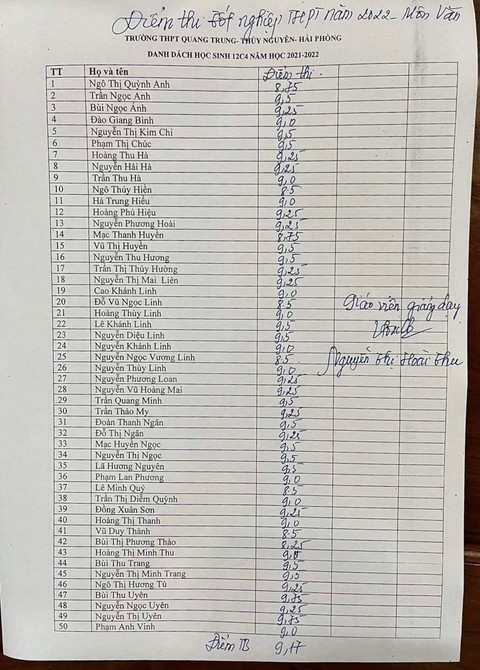 Điểm thi tốt nghiệp THPT năm 2022 - Môn Văn
TRƯỜNG THPT QUANG TRUNG- THỦY NGUYÊN- HẢI PHÒNG
DANH DÁCH HỌC SINH 12C4 NĂM HỌC 2021-2022
TT Họ và tên Điểm thi
1 Ngô Thị Quỳnh Anh 8,75
2 Trần Ngọc Anh 9,5
3 Bùi Ngọc Ánh 9,25
4 Đào Giang Bình 9,0
5 Nguyễn Thị Kim Chi 9,5
6 Phạm Thị Chúc 9,5
7 Hoàng Thu Hà 9,25
8 Nguyễn Hải Hà 9,25
9 Trần Thu Hà 9,0
10 Ngô Thúy Hiền 8,5
11 Hà Trung Hiếu 9,0
12 Hoàng Phú Hiệu 9,25
13 Nguyễn Phương Hoài 9,25
14 Mạc Thanh Huyền 8,75
15 Vũ Thị Huyền 9,5
16 Nguyễn Thu Hương 9,5
17 Trần Thị Thúy Hường 9,25
18 Nguyễn Thị Mai Liên 9,25
19 Cao Khánh Linh 9,0
20 Đỗ Vũ Ngọc Linh 8,5
Giáo viên giảng dạy
21 Hoàng Thùy Linh 9,0
22 Lê Khánh Linh 9,5
23 Nguyễn Diệu Linh 9,5
24 Nguyễn Khánh Linh 9,0
25 Nguyễn Ngọc Vương Linh 8,5
Nguyễn Thị Hoài Thu
26 Nguyễn Thùy Linh 9,0
27 Nguyễn Phương Loan 9,25
28 Nguyễn Vũ Hoàng Mai 9,25
29 Trần Quang Minh 9,5
30 Trần Thảo My 9,25
31 Đoàn Thanh Ngân 9,5
32 Đỗ Thị Ngân 9,25
33 Mạc Huyền Ngọc 9,5
34 Nguyễn Thị Ngọc 9,5
35 Lã Hương Nguyên 9,5
36 Phạm Lan Phương 9,0
37 Lê Minh Quý 8,5
38 Trần Thị Diễm Quỳnh 9,0
39 Đồng Xuân Sơn 9,25
40 Hoàng Thị Thanh 9,0
41 Vũ Duy Thành 8,5
42 Bùi Thị Phương Thảo 8,25
43 Hoàng Thị Minh Thu
44 Bùi Thu Trang 9,5
45 Nguyễn Thị Minh Trang 9,5
46 Ngô Thị Hương Tú 9,25
47 Bùi Thu Uyên 9,75
48 Nguyễn Ngọc Uyên 9,25
49 Nguyễn Thị Uyên 9,75
50 Phạm Anh Vinh 9,0
Điểm TB 9,17